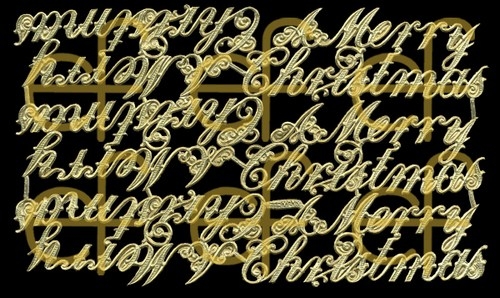 A Merry
Christmas
A Merry
Christmas
A Merry
Christmas
A Merry
Christmas
A Merry
Christmas
A Merry
Christmas